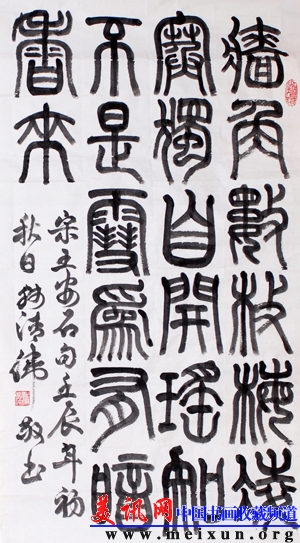 牆角數枝梅凌
寒獨自開瑤知
不是雪為有暗
香來
宋王安石句壬辰年初
秋日 敬书
美讯网 中国书画收藏频道
www.meixun.org